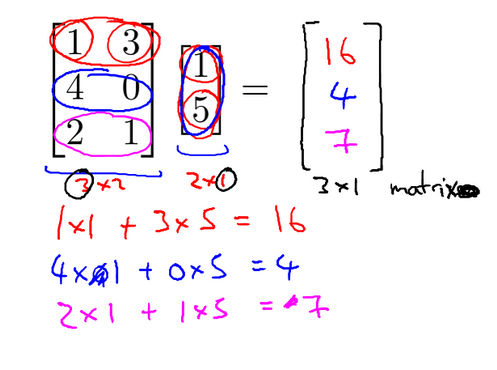 1 3 1 16
4 0 = 4
2 1 5 7
3×2 2×1 3×1 matrix
1×1 + 3×5 = 16
4×1 + 0×5 = 4
2×1 + 1×5 = 7